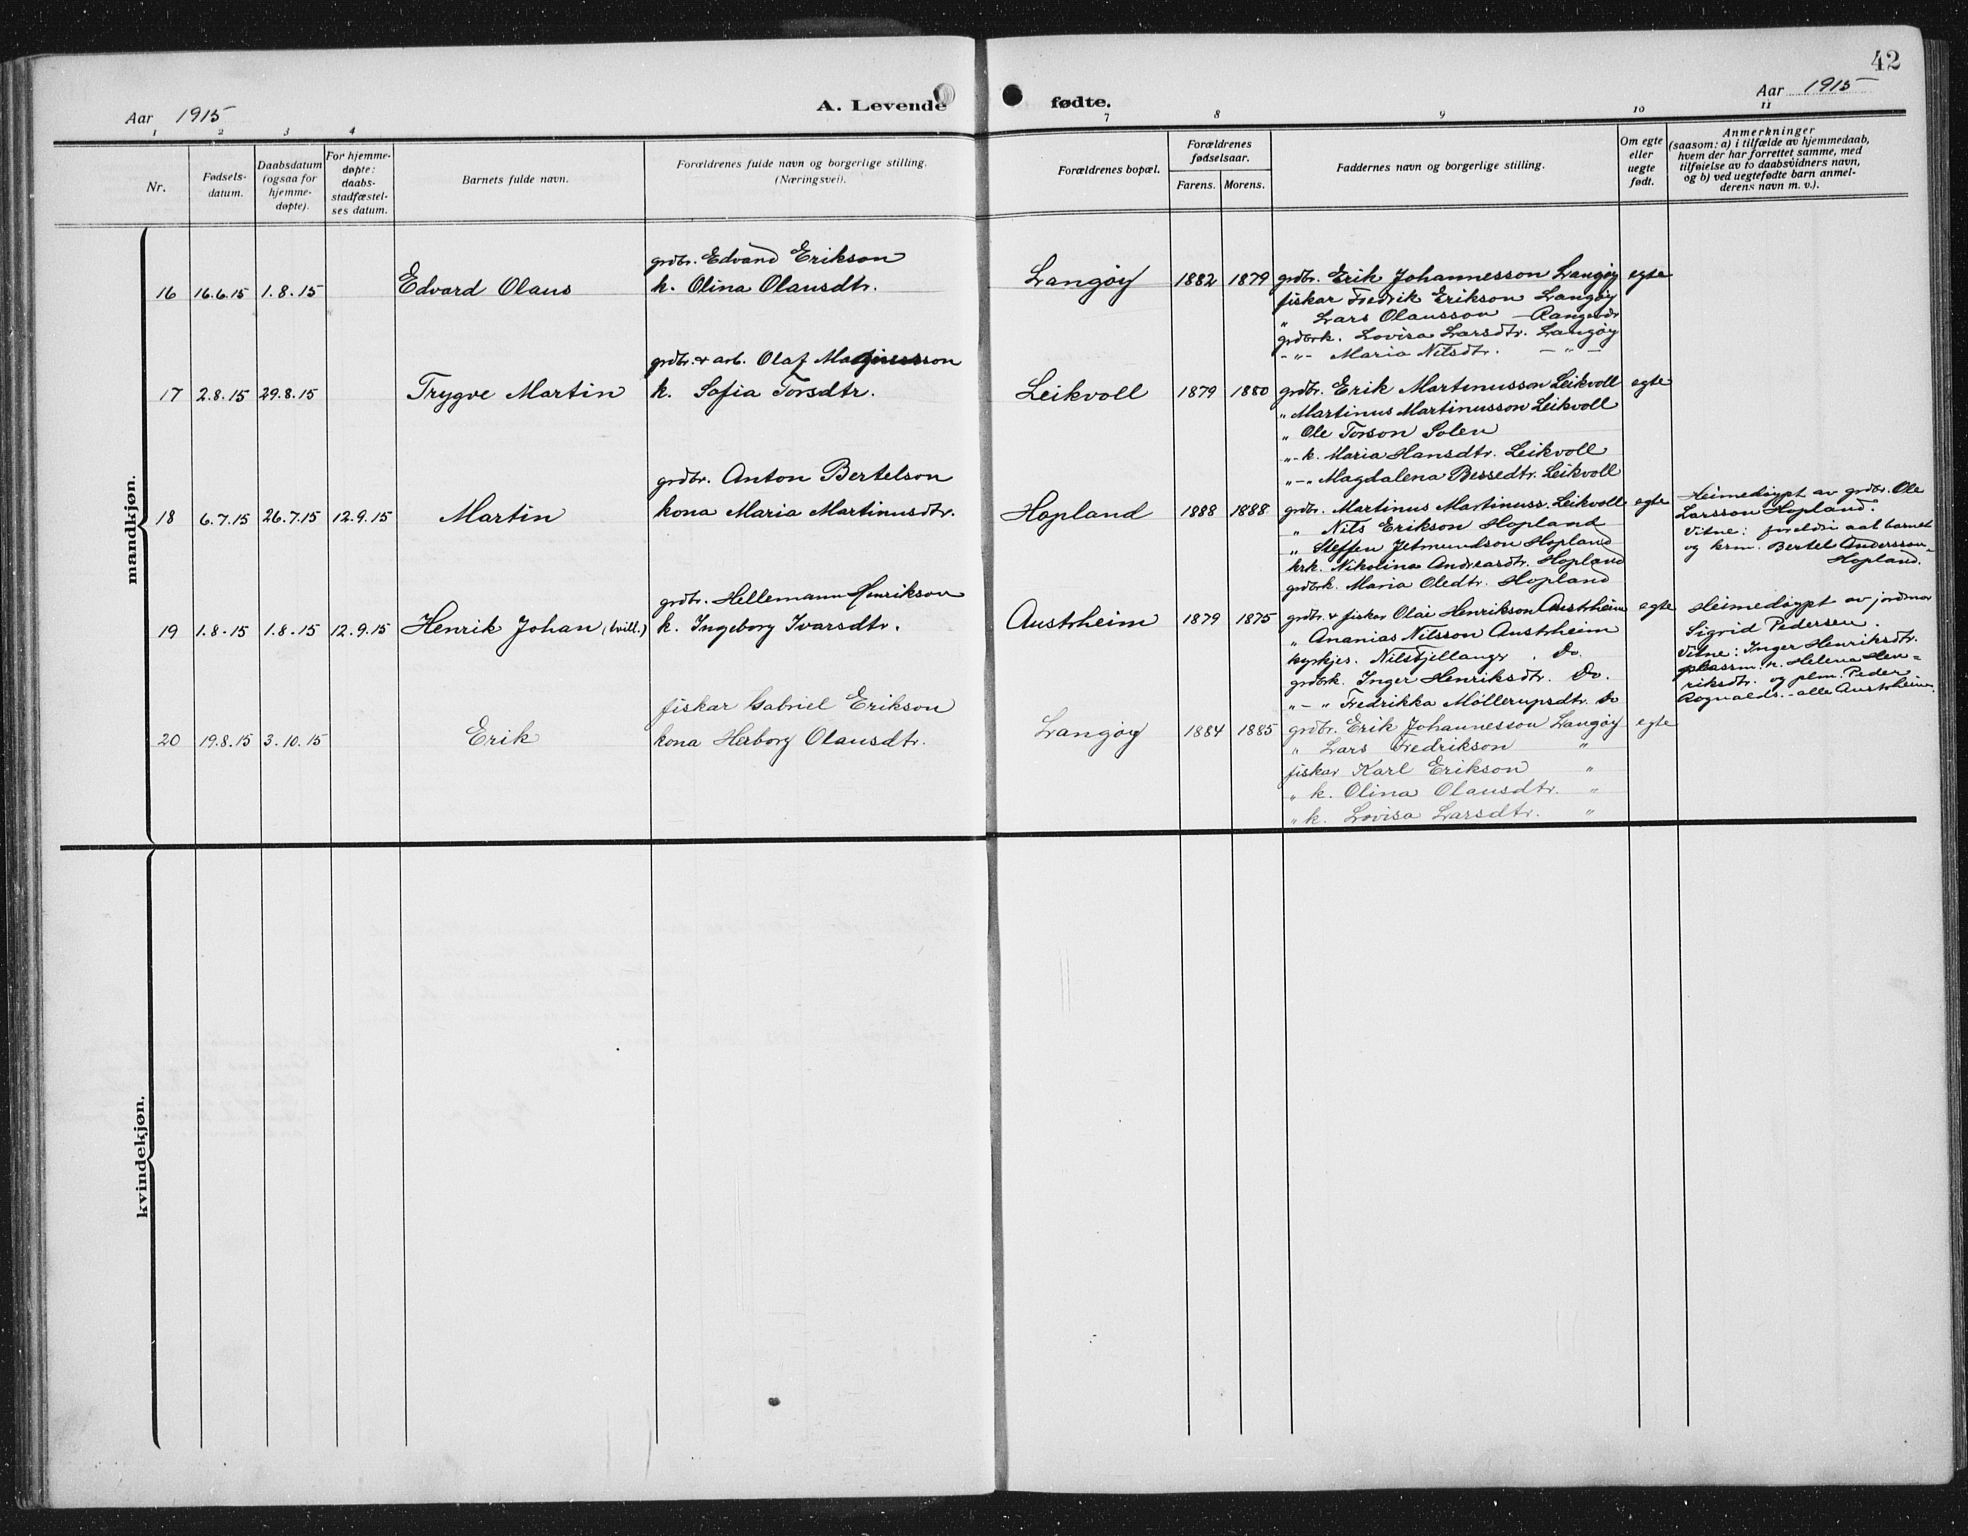 42
Aar 1915
A. Levende fødte.
Aar 1915
1 2 3 4 7 8 9 10 11
Nr.
Fødsels-
datum.
Daabsdatum
(ogsaa for
hjemme-
døpte).
For hjemme-
døpte:
daabs-
stadfæstel-
ses datum.
Barnets fulde navn.
Forældrenes fulde navn og borgerlige stilling.
(Næringsvei).
Forældrenes bopæl.
Forældrenes
fødselsaar.
Farens. Morens.
Faddernes navn og borgerlige stilling.
Om egte
eller
uegte
født.
Anmerkninger
(saasom: a) i tilfælde av hjemmedaab,
hvem der har forrettet samme, med
tilføielse av to daabsvidners navn,
og b) ved uegtefødte barn anmel-
derens navn m. v.).
mandkjøn.
grdbr. Edvard Erikson
16 16.6.15 1.8.15 Edvard Olaus k. Olina Olausdtr. Langøy 1882 1879 grdbr. Erik Johannesson Langøy egte
fiskar Fredrik Erikson Langøy
" Lars Olausson — Rangsvær
grdbrk. Lovisa Larsdtr. Langøy
-"- Maria Nilsdtr. -"-
grdbr. & arb. Olaf Magnusson
17 2.8.15 29.8.15 Trygve Martin k. Sofia Torsdtr. Leikvoll 1879 1880 grdbr. Erik Martinusson Leikvoll egte
" Martinus Martinusson Leikvoll
" Ole Torson Solen
"-k. Maria Hansdtr. Leikvoll
"-" Magdalena Bessedtr. Leikvoll
grdbr. Anton Bertelson
18 6.7.15 26.7.15 12.9.15 Martin kona Maria Martinusdtr. Hopland 1888 1888 grdbr. Martinus Martinuss. Leikvoll egte
" Nils Erikson Hopland
" Steffen Jetmundson Hopland
krk. Nikolina Andreasdtr. Hopland
grdbrk. Maria Oledtr. Hopland
Heimedøypt av grdbr. Ole
Larsson Hopland.
Vitne: foreldri aat barnet
og krm. Bertel Andersson
Hopland.
grdbr. Hellemann Henrikson
19 1.8.15 1.8.15 12.9.15 Henrik Johan (tvill.) k. Ingeborg Ivarsdtr. Austrheim 1879 1875 grdbr. & fiskar Olai Henrikson Austrheim egte
" Ananias Nilsson Austrheim
kyrkjes. Nils Fjellanger. Do.
grdbrk. Inger Henriksdtr. Do.
"-" Fredrikka Möllerupsdtr. Do
Heimedøypt av jordmor
Sigrid Pedersen.
Vitne: Inger Henriksdtr.
plassm. k. Helena Hen-
riksdtr. og plm. Peder
Rognalds. - alle Austrheim.
fiskar Gabriel Erikson
20 19.8.15 3.10.15 Erik kona Herborg Olausdtr. Langøy 1884 1885 grdbr. Erik Johannesson Langøy egte
" Lars Fredrikson "
fiskar Karl Erikson "
" k. Olina Olausdtr. "
" k. Lovisa Larsdtr. "
kvindekjøn.